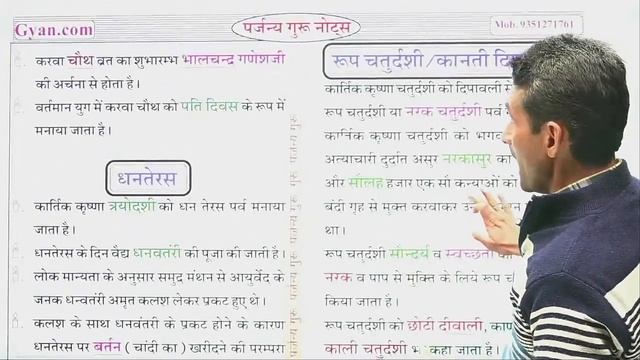 Gyan.com
पर्जन्य गुरू नोट्स
Mob. 9351271761
करवा चौथ व्रत का शुभारम्भ भालचन्द्र गणेशजी
की अर्चना से होता है।
वर्तमान युग में करवा चौथ को पति दिवस के रूप में
मनाया जाता है।
धनतेरस
कार्तिक कृष्णा त्रयोदशी को धन तेरस पर्व मनाया
जाता है।
धनतेरस के दिन वैद्य धनवतंरी की पूजा की जाती है।
लोक मान्यता के अनुसार समुद्र मंथन से आयुर्वेद के
जनक धन्वतंरी अमृत कलश लेकर प्रकट हुए थे।
कलश के साथ धनवंतरी के प्रकट होने के कारण
धनतेरस पर बर्तन ( चांदी का ) खरीदने की परम्परा
पर्जन्य गुरू पर्जन्य गुरू पर्जन्य गुरू
रूप चतुर्दशी/कानती
कार्तिक कृष्णा चतुर्दशी को दिपावली
रूप चतुर्दशी या नरक चतुर्दशी पर्व
कार्तिक कृष्णा चतुर्दशी को
अत्याचारी दुर्दात असुर नरकासुर का
और सौलह हजार एक सौ कन्याओं को
बंदी गृह से मुक्त करवाकर
था।
रूप चतुर्दशी सौन्दर्य व स्वच्छता
नरक व पाप से मुक्ति के लिये रूप
किया जाता है।
रूप चतुर्दशी को छोटी दीवाली,
काली चतुर्दशी कहा जाता है।